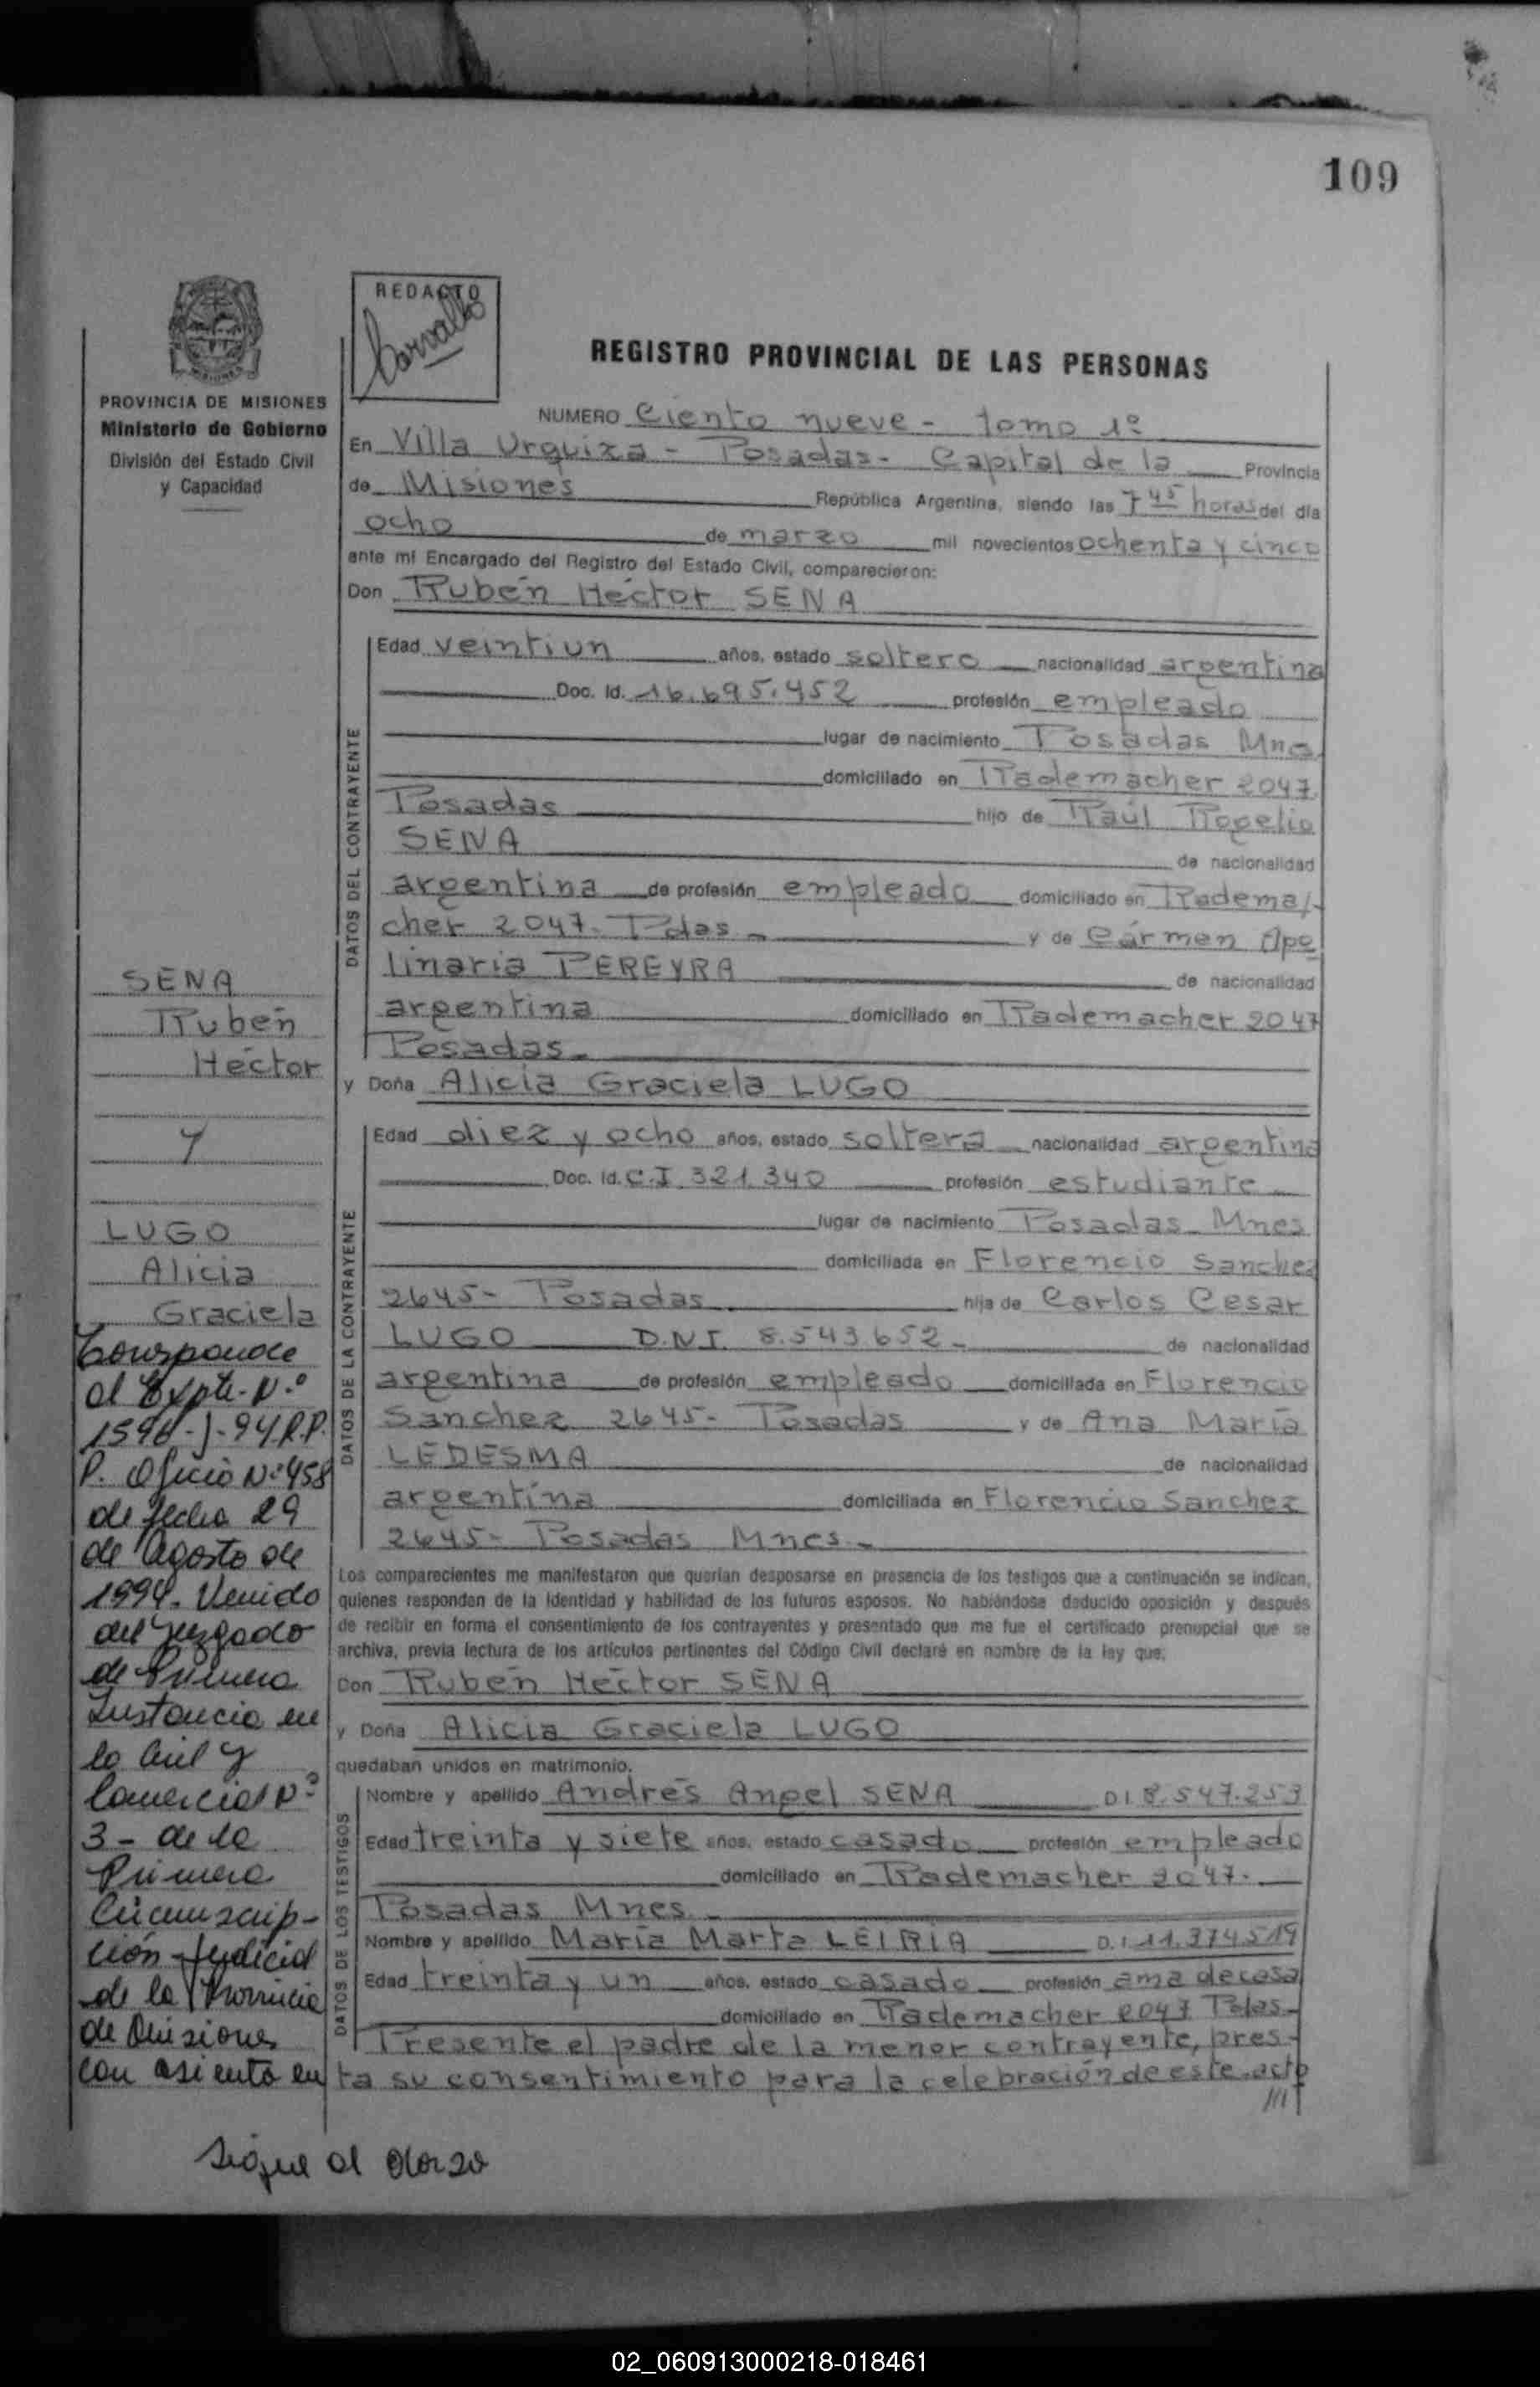 109
REDACTO
Carvallo
MISIONES
PROVINCIA DE MISIONES
Ministerio de Gobierno
División del Estado Civil
y Capacidad
REGISTRO PROVINCIAL DE LAS PERSONAS
NUMERO Ciento nueve - Tomo 1º
En Villa Urquiza - Posadas - Capital de la Provincia
de Misiones República Argentina, siendo las 7 45 horas del día
ocho de marzo mil novecientos ochenta y cinco
ante mi Encargado del Registro del Estado Civil, comparecieron:
Don Rubén Héctor SENA
DATOS DEL CONTRAYENTE
Edad veintiun años, estado soltero nacionalidad argentina
Doc. Id. 16.695.452 profesión empleado
lugar de nacimiento Posadas Mnes
domiciliado en Rademacher 2047
Posadas hijo de Raúl Rogelio
SENA de nacionalidad
argentina de profesión empleado domiciliado en Radema/-
cher 2047- Pdas - y de Cármen Apo
linaria PEREYRA de nacionalidad
argentina domiciliado en Rademacher 2047
Posadas -
y Doña Alicia Graciela LUGO
DATOS DE LA CONTRAYENTE
Edad diez y ocho años, estado soltera nacionalidad argentina
Doc. Id. C.I 321.340 profesión estudiante
lugar de nacimiento Posadas Mnes
domiciliada en Florencio Sanchez
2645- Posadas hija de Carlos Cesar
LUGO D.N.I. 8.543.652 - de nacionalidad
argentina de profesión empleado domiciliada en Florencio
Sanchez 2645- Posadas y de Ana María
LEDESMA de nacionalidad
argentina domiciliada en Florencio Sanchez
2645- Posadas Mnes -
Los comparecientes me manifestaron que querían desposarse en presencia de los testigos que a continuación se indican,
quienes responden de la identidad y habilidad de los futuros esposos. No habiéndose deducido oposición y después
de recibir en forma el consentimiento de los contrayentes y presentado que me fue el certificado prenupcial que se
archiva, previa lectura de los artículos pertinentes del Código Civil declaré en nombre de la ley que:
Don Rubén Héctor SENA
y Doña Alicia Graciela LUGO
quedaban unidos en matrimonio.
DATOS DE LOS TESTIGOS
Nombre y apellido Andrés Angel SENA D.I 8.547.253
Edad treinta y siete años, estado casado profesión empleado
domiciliado en Rademacher 2047-
Posadas Mnes -
Nombre y apellido María Marta LEIRIA D.I 11.374.519
Edad treinta y un años, estado casado profesión ama de casa
domiciliado en Rademacher 2047 Pdas-
Presente el padre de la menor contrayente, pres-
ta su consentimiento para la celebración de este acto
///
SENA
Rubén
Héctor
Y
LUGO
Alicia
Graciela
Corresponde
al Expte. N.º
1596-J-94 R.P.
P. Oficio Nº 458
de fecha 29
de Agosto de
1994. Venido
del Juzgado
de Primera
Instancia en
lo Civil y
Comercial Nº
3 - de la
Primera
Circunscrip-
ción Judicial
de la Provincia
de Misiones
con asiento en
Sigue al dorso
02_060913000218-018461